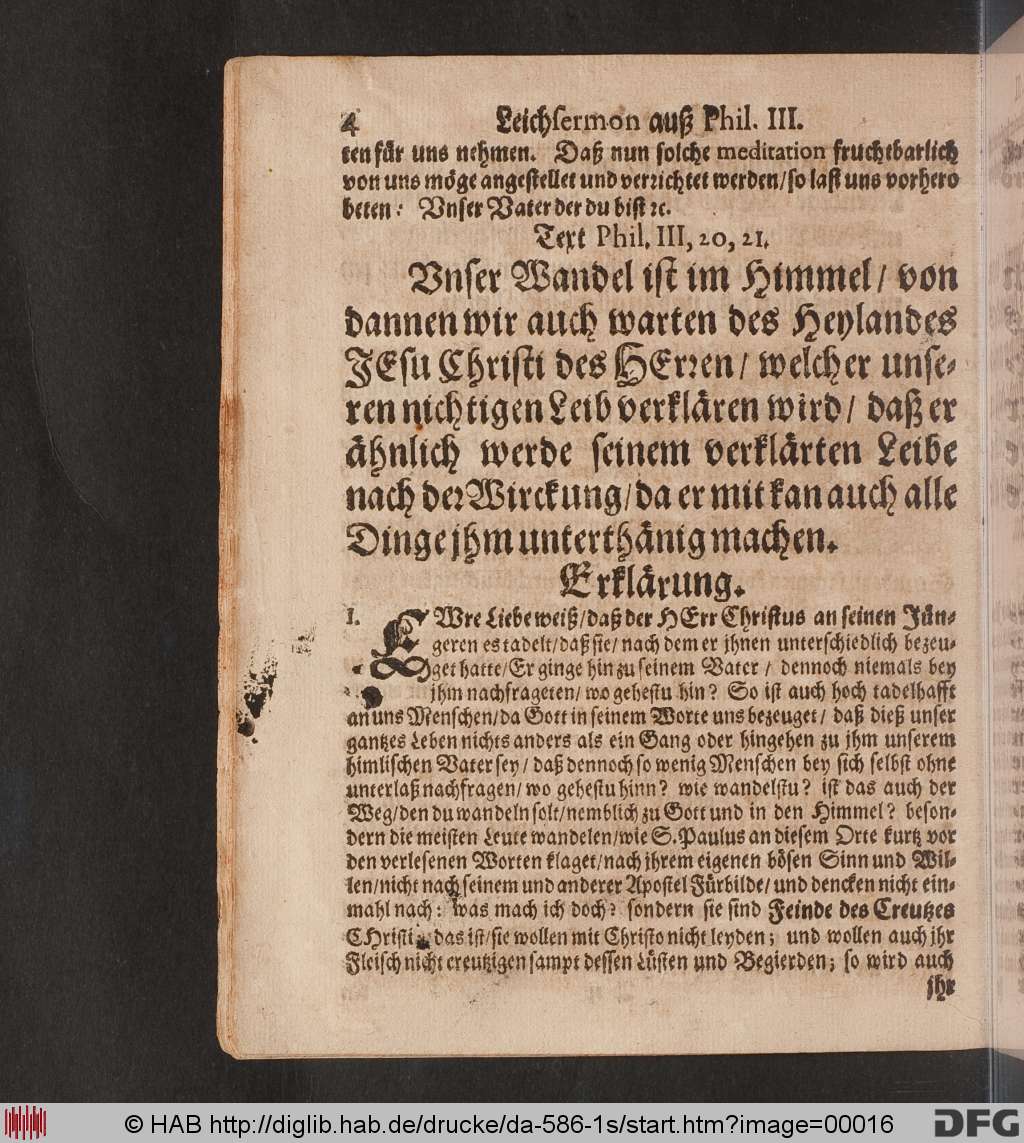 4 Leichsermon auß Phil. III.
ten für uns nehmen. Daß nun solche meditation fruchtbarlich
von uns möge angestellet und verrichtet werden/ so last uns vorhero
beten: Vnser Vater der du bist ꝛc.
Text Phil. III, 20, 21.
Vnser Wandel ist im Himmel/ von
dannen wir auch warten des Heylandes
JEsu Christi des HErren/ welcher unse-
ren nichtigen Leib verklären wird/ daß er
ähnlich werde seinem verklärten Leibe
nach der Wirckung/ da er mit kan auch alle
Dinge jhm unterthänig machen.
Erklärung.
1. EWre Liebe weiß/ daß der HErr Christus an seinen Jün-
geren es tadelt/ daß sie/ nach dem er jhnen unterschiedlich bezeu-
get hatte/ Er ginge hin zu seinem Vater/ dennoch niemals bey
jhm nachfrageten/ wo gehestu hin? So ist auch hoch tadelhafft
an uns Menschen/ da Gott in seinem Worte uns bezeuget/ daß dieß unser
gantzes Leben nichts anders als ein Gang oder hingehen zu jhm unserem
himlischen Vater sey/ daß dennoch so wenig Menschen bey sich selbst ohne
unterlaß nachfragen/ wo gehestu hinn? wie wandelstu? ist das auch der
Weg/ den du wandeln solt/ nemblich zu Gott und in den Himmel? beson-
dern die meisten Leute wandelen/ wie S. Paulus an diesem Orte kurtz vor
den verlesenen Worten klaget/ nach jhrem eigenen bösen Sinn und Wil-
len/ nicht nach seinem und anderer Apostel Fürbilde/ und dencken nicht ein-
mahl nach: was mach ich doch? sondern sie sind Feinde des Creutzes
CHristi, das ist/ sie wollen mit Christo nicht leyden; und wollen auch jhr
Fleisch nicht creutzigen sampt dessen Lüsten und Begierden; so wird auch
jhr
© HAB http://diglib.hab.de/drucke/da-586-1s/start.htm?image=00016
DFG